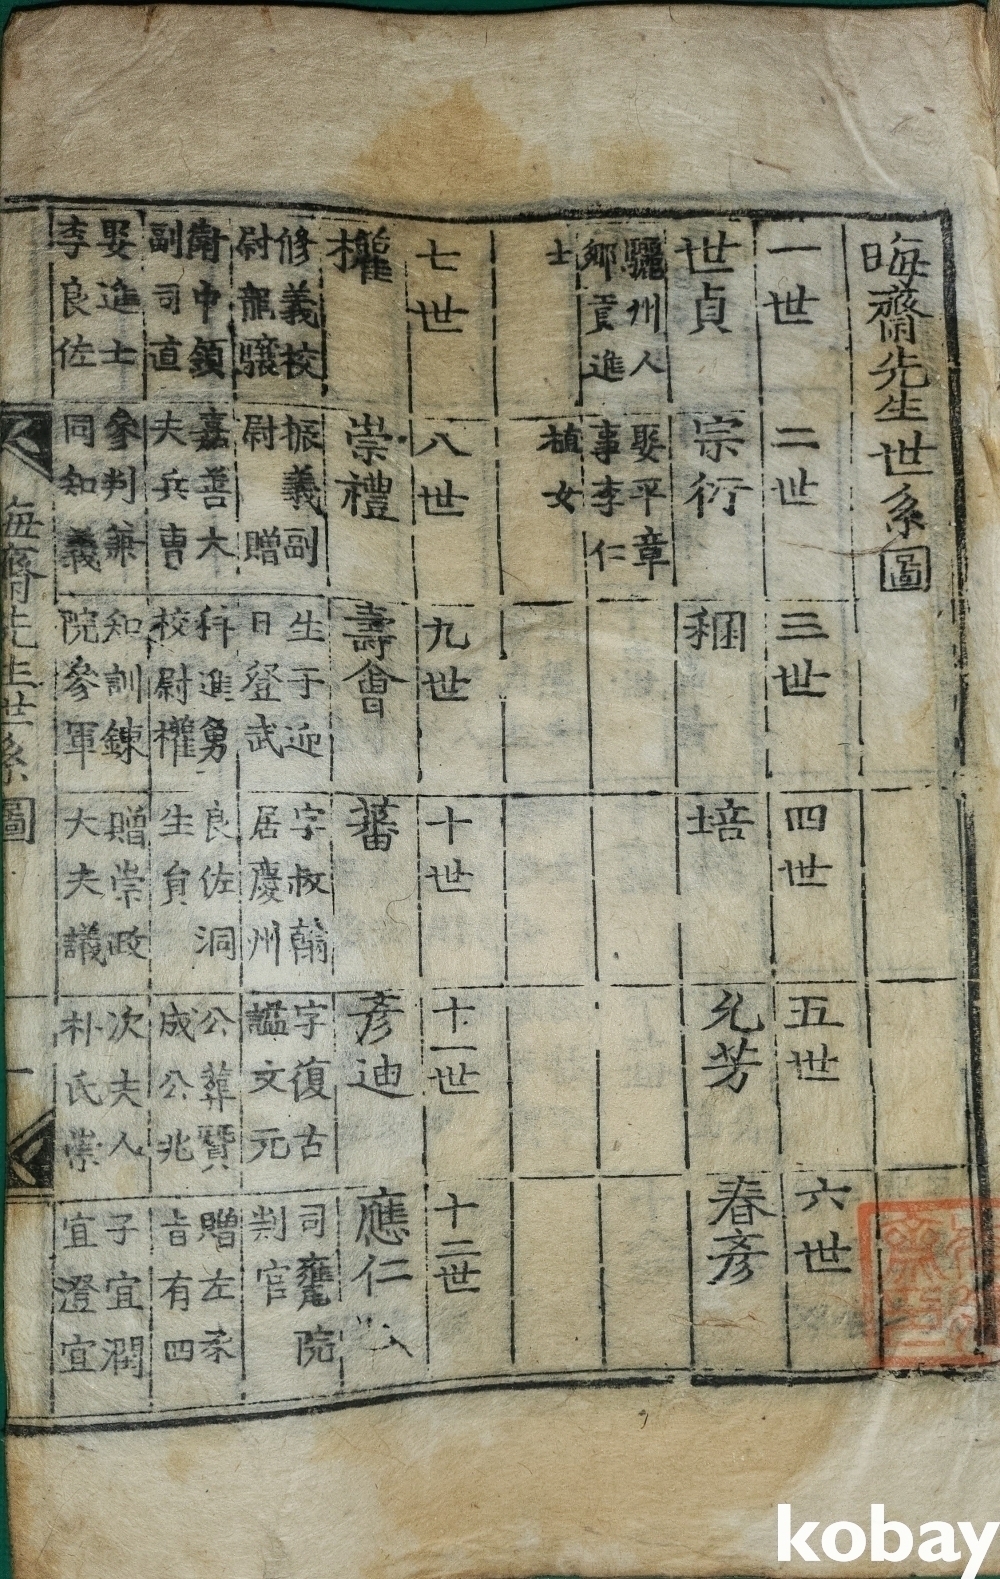 晦齋先生世系圖
一世
二世
三世
四世
五世
六世
世貞
宗衍
稇
培
允芳
春彥
驪州人
鄕貢進
士
娶平章
事李仁
植女
七世
八世
九世
十世
十一世
十二世
權
崇禮
壽會
蕃
彥迪
應仁
修義校
尉龍驤
衛中領
副司直
娶進士
李良佐
振義副
尉 贈
嘉善大
夫兵曹
參判兼
同知義
生于迎
日登武
科進勇
校尉權
知訓鍊
院參軍
字叔翰
居慶州
良佐洞
生員
贈崇政
大夫議
字復古
謚文元
公葬贊
成公兆
次夫人
朴氏崇
司饔院
判官
贈左承
旨有四
子宜潤
宜澄宜
晦齋先生世系圖
一
kobay